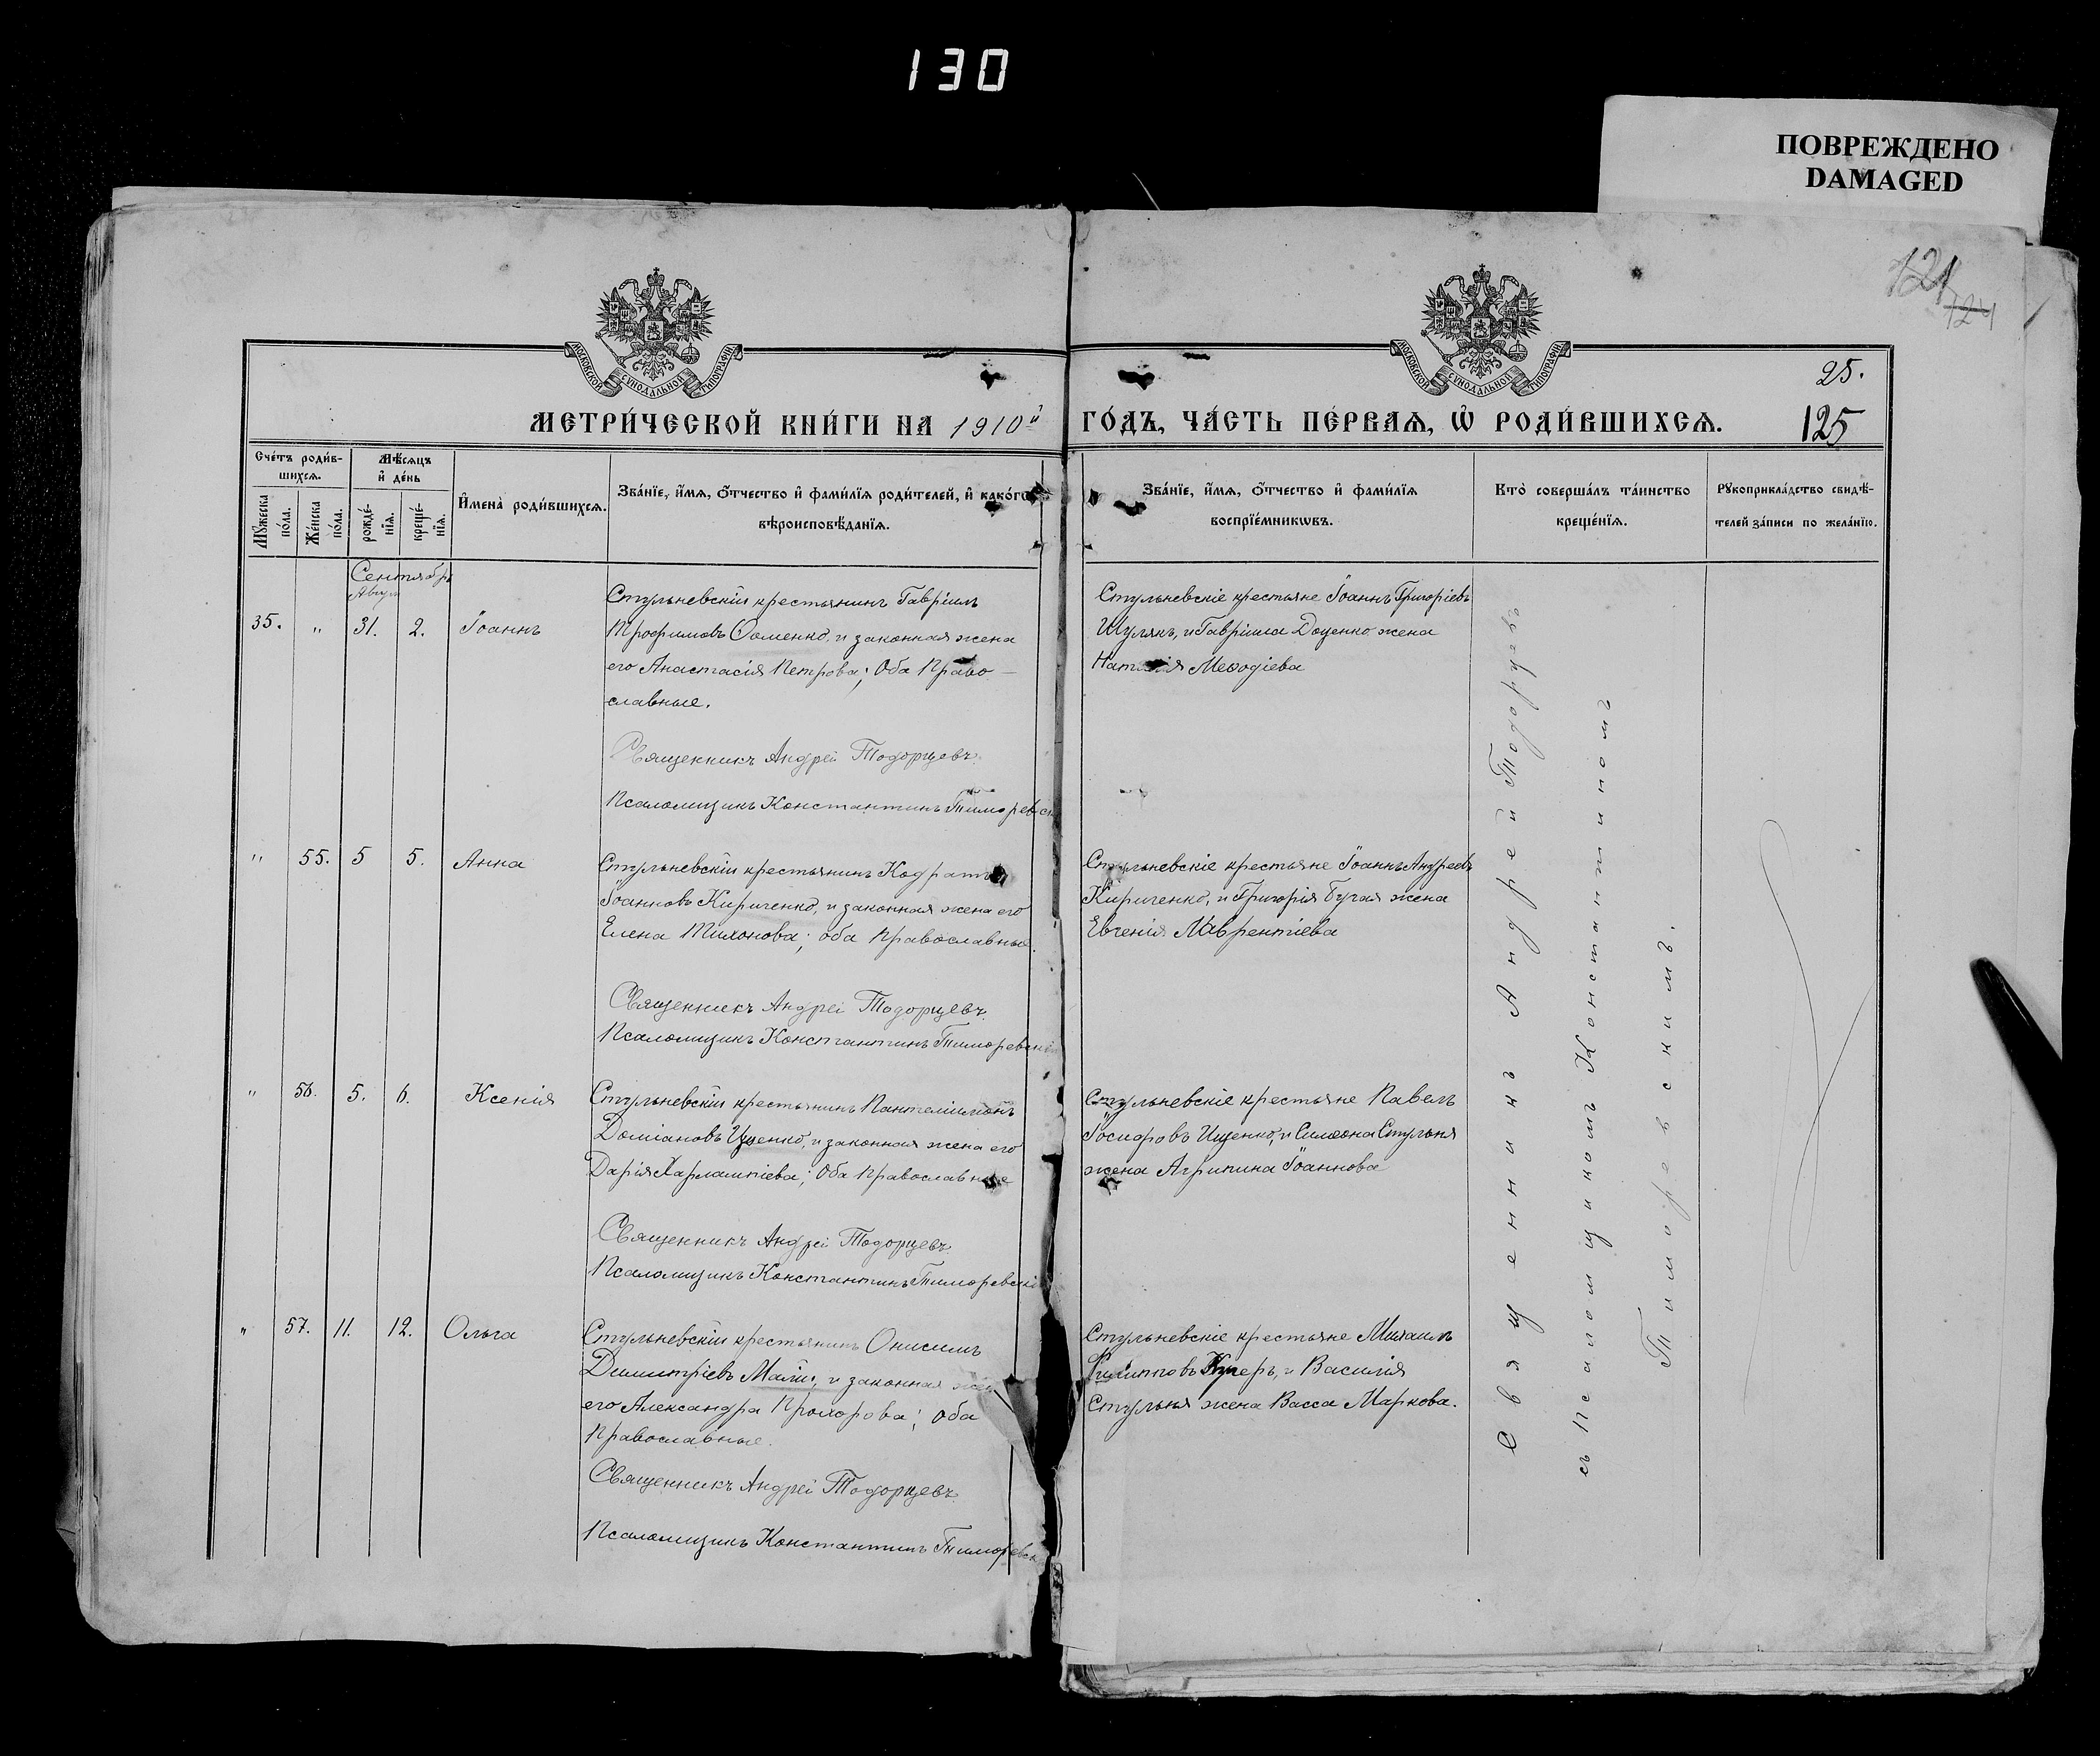 130
ПОВРЕЖДЕНО
DAMAGED
121
124
МОСКОВСКОЙ СѴНОДАЛЬНОЙ ТИПОГРАФІИ
МОСКОВСКОЙ СѴНОДАЛЬНОЙ ТИПОГРАФІИ
25.
МЕТРИ́ЧЕСКОЙ КНИ́ГИ НА 1910й ГО́ДЪ, ЧА́СТЬ ПЕ́РВАѦ, Ѡ҆ РОДИ́ВШИХСѦ.
125
Сче́тъ роди́в-
шихсѧ.
Мꙋ́жеска
по́ла.
Же́нска
по́ла.
Мѣ́сѧцъ
и҆ де́нь
рожде́-
нїѧ.
креще́-
нїѧ.
И҆мена̀ роди́вшихсѧ.
Зва́нїе, и҆́мѧ, ѻ҆́тчество и҆ фами́лїѧ роди́телей, и҆ како́гѡ
вѣроисповѣ́данїѧ.
Зва́нїе, и҆́мѧ, ѻ҆́тчество и҆ фами́лїѧ
воспрїе́мникѡвъ.
Кто̀ соверша́лъ та́инство
креще́нїѧ.
Рꙋкоприкла́дство свидѣ́-
телей за́писи по жела́нїю.
Сентябрь
Август
35. „ 31. 2. Іоаннъ
Стульневскій крестьянинъ Гавріилъ
Трофимовъ Фоменко, и законная жена
его Анастасія Петрова; Оба Право-
славные.
Священникъ Андрей Тодорцевъ.
Псаломщикъ Константинъ Тиморевск
Стульневскіе крестьяне Іоаннъ Григоріевъ
Шулякъ, и Гавріила Доценко жена
Наталія Меѳодіева
„ 55. 5 5. Анна
Стульневскій крестьянинъ Кодратъ
Іоанновъ Кириченко, и законная жена его
Елена Тихонова; оба Православные.
Священникъ Андрей Тодорцевъ.
Псаломщикъ Константинъ Тиморевскій
Стульневскіе крестьяне Іоаннъ Андреевъ
Кириченко, и Григорія Бугая жена
Евгенія Лаврентіева
„ 56. 5. 6. Ксенія
Стульневскій крестьянинъ Пантелиимонъ
Доміановъ Ищенко, и законная жена его
Дарія Харлампіева; Оба Православные
Священникъ Андрей Тодорцевъ.
Псаломщикъ Константинъ Тиморевскій
Стульневскіе крестьяне Павелъ
Іосифовъ Ищенко, и Симеона Стульня
жена Агрипина Іоаннова
„ 57. 11. 12. Ольга
Стульневскій крестьянинъ Онисимъ
Димитріевъ Малій, и законная жен
его Александра Прохорова; Оба
Православные.
Священникъ Андрей Тодорцевъ.
Псаломщикъ Константинъ Тиморевск
Стульневскіе крестьяне Михаилъ
Филипповъ Кучеръ, и Василія
Стульня жена Васса Маркова.
Священникъ Андрей Тодорцевъ
съ Псаломщикомъ Константиномъ
Тиморевскимъ.